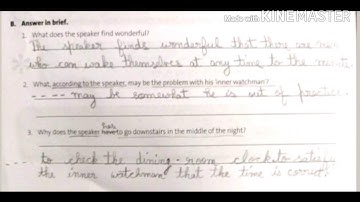 Made with KINEMASTER
B. Answer in brief.
1. What does the speaker find wonderful?
The speaker finds wonderful that there are men
who can wake themselves at any time to the minute.
2. What, according to the speaker, may be the problem with his 'inner watchman'?
---- may be somewhat he is out of practice.
3. Why does the speaker have to go downstairs in the middle of the night?
to check the dining-room clock to satisfy
the inner watchman that the time is correct.